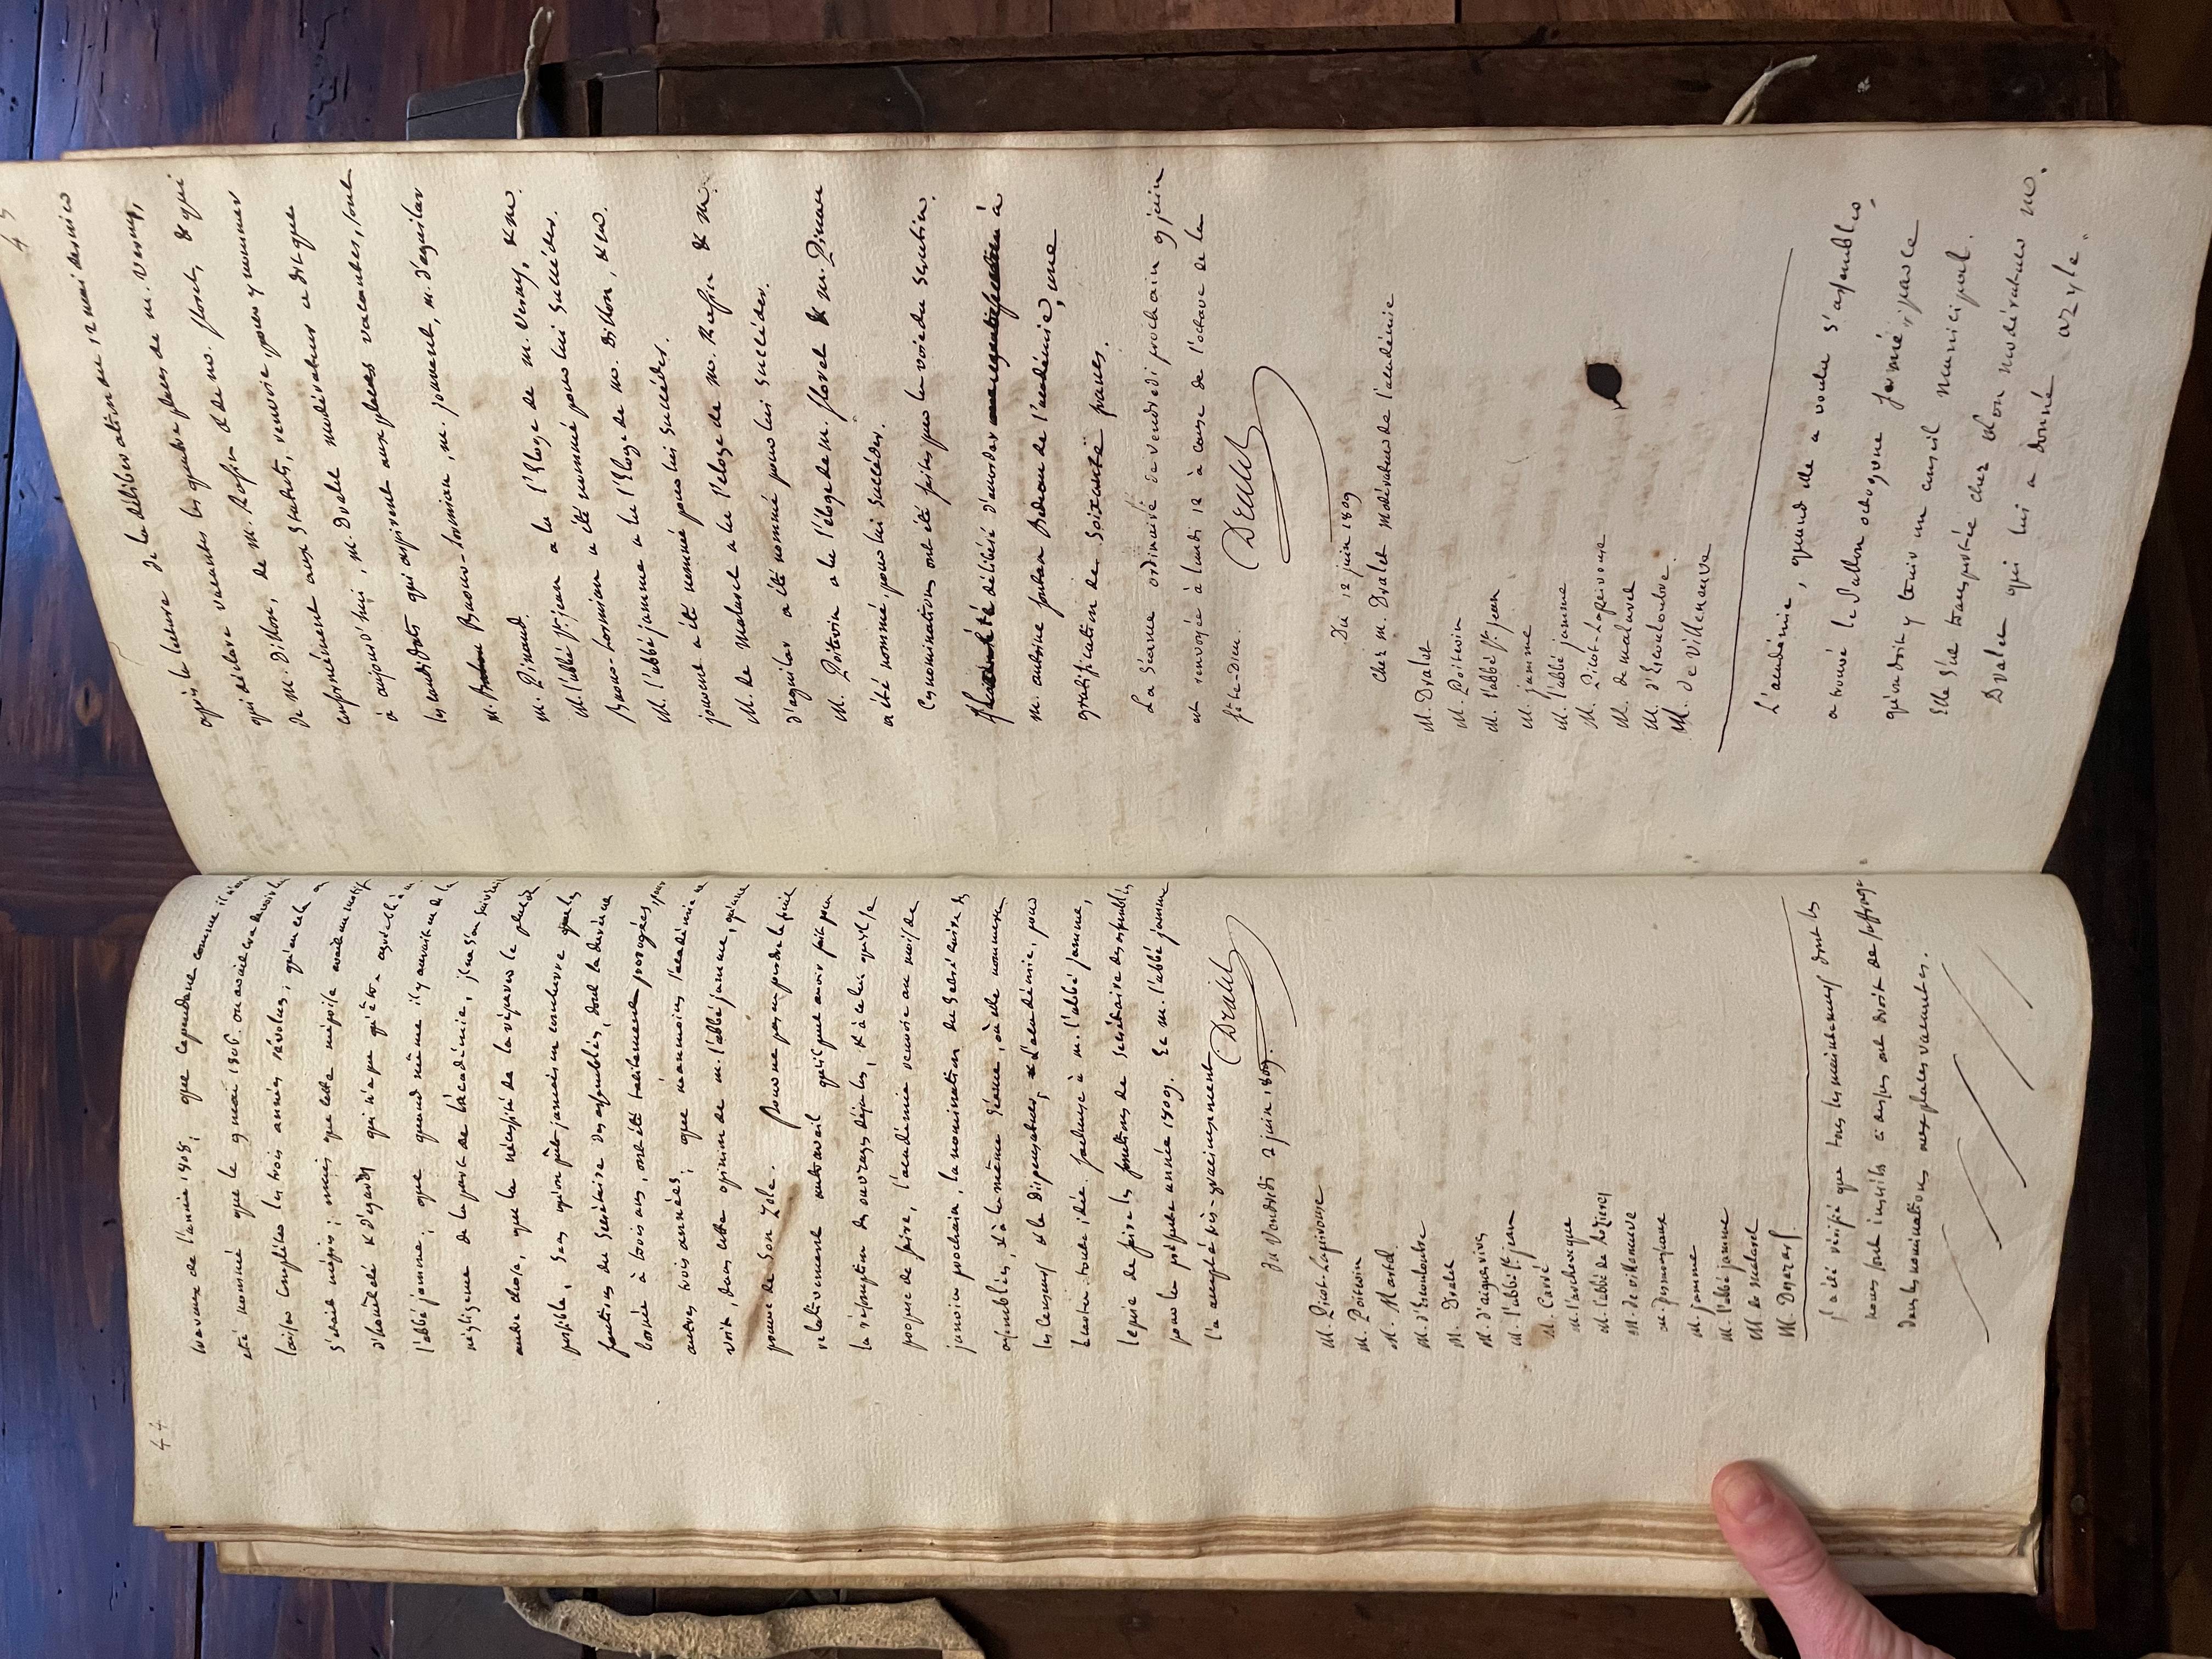 44
travaux de l'année 1808; que cependant comme il n'a
été nommé que le 9 mai 1806. on avait cru devoir lui
laisser compléter les trois années révolues; qu'en cela on
s'était mépris; mais que cette méprise avait un motif
d'honnêteté & d'égards qui n'a pu qu'être agréable à m.
l'abbé jamme; que quand même il y aurait eu de la
négligence de la part de l'académie, il ne s'en suivrait
autre chose, que la nécessité de la réparer le plutôt
possible, sans qu'on pût jamais en conclure que les
fonctions du secrétaire des assemblées, dont la durée est
bornée à trois ans, ont été tacitement prorogées, pour
autres trois années; que néanmoins l'académie ne
voit, dans cette opinion de m. l'abbé jamme, qu'une
preuve de son zèle.
relativement au travail qu'il peut avoir fait pour
la réception des ouvrages déjà lus, & à celui qu'il se
propose de faire, l'académie renvoie au mois de
janvier prochain, la nomination du secrétaire des
assemblées, & à la même séance, où elle nommera
les censeurs et le dispensateur, & l'académie, pour
écarter toute idée fâcheuse à m. l'abbé jamme,
le prie de faire les fonctions de secrétaire des assemblées
pour la présente année 1809. Ce m. l'abbé jamme
l'a accepté très-gracieusement
Dralet
Du Vendredi 2 juin 1809.
M. Picot-Lapeirouse
M. Poitevin
M. Martel
M. d'Escouloubre
M. Dralet
M. d'aiguesvives
M. l'abbé St. jean
M. Carré
M. l'archevêque
M. l'abbé de Roziers
M. de villeneuve
M. Desmousseaux
M. jamme
M. l'abbé jamme
M. de malaret
M. Desazars.
Il a été vérifié que tous les mainteneurs dont les
noms sont inscrits ci dessus ont droit de suffrage
dans les nominations aux places vacantes.
45
après la lecture de la délibération du 12 mai dernier
qui déclare vacantes les quatre places de m. Verny,
de M. Dillon, de M. Raffin & de m. floret, & qui
conformément aux statuts, renvoie, pour y nommer
à aujourd'hui, M. Dralet modérateur a dit que
les candidats qui aspirent aux places vacantes, sont
M. Baour-Lormian, M. jouvent, M. d'aguilar
& M. Pinaud.
M. l'abbé St. jean a lu l'éloge de M. Verny, & M.
Baour-Lormian a été nommé pour lui succéder.
M. l'abbé jamme a lu l'éloge de M. Dillon, & M.
jouvent a été nommé pour lui succéder.
M. de Malaret a lu l'éloge de M. Raffin & M.
d'aguilar a été nommé pour lui succéder.
M. Poitevin a lu l'éloge de M. floret & M. Pinaud
a été nommé pour lui succéder.
Ces nominations ont été faites par la voie du scrutin.
Il a été délibéré d'accorder à
M. antoine Bedeau de l'académie, une
gratification de soixante francs.
La séance ordinaire de vendredi prochain 9 juin
est renvoyée à lundi 12 à cause de l'octave de la
fête-Dieu.
Dralet
Du 12 juin 1809
Chez M. Dralet Modérateur de l'académie
M. Dralet
M. Poitevin
M. l'abbé St. jean
M. jamme
M. l'abbé jamme
M. Picot-Lapeirouse
M. de malaret
M. d'Escouloubre.
M. De Villeneuve
L'académie, quand elle a voulu s'assembler,
a trouvé le Sallon octogone fermé, parce
qu'on doit y tenir un conseil municipal.
Elle s'est transportée chez son modérateur M.
Dralet qui lui a donné azyle.